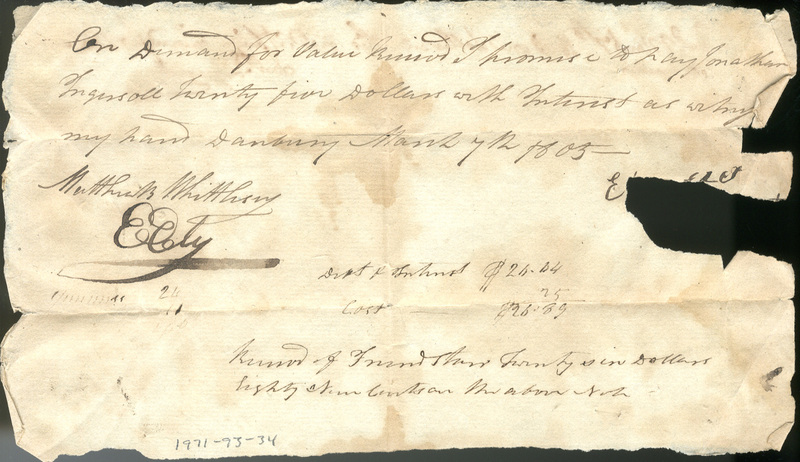 On Demand for Value Receivd I promise to pay Jonathan
Ingersoll Twenty five Dollars with Interest as witness
my hand Danbury March 7th 1805
Matthew B Whittlesey
Debt & Interest $26.64
25
Cost $26.89
24
Receivd of Friend Starr Twenty six Dollars
Eighty Nine Cents on the above Note
1971-93-34